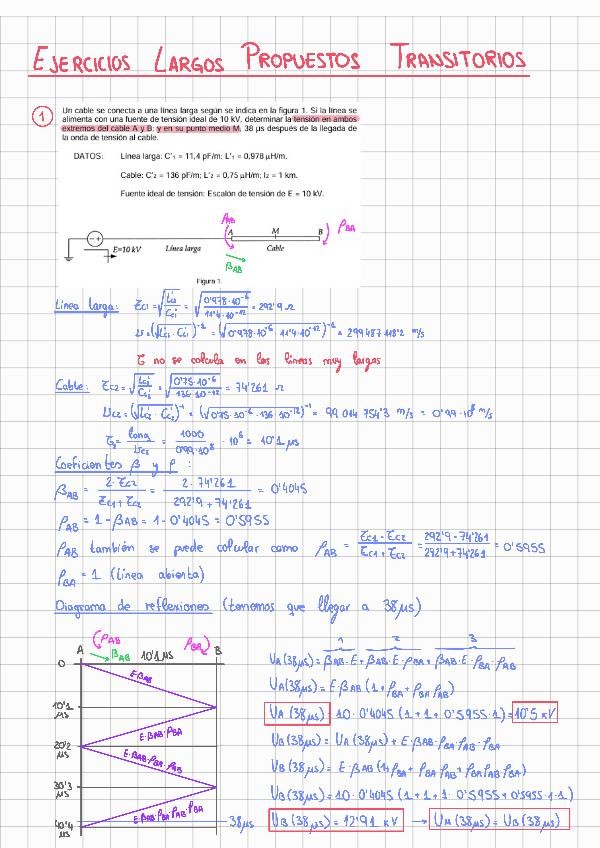 EJERCICIOS LARGOS PROPUESTOS TRANSITORIOS
1
Un cable se conecta a una línea larga según se indica en la figura 1. Si la línea se
alimenta con una fuente de tensión ideal de 10 kV, determinar la tensión en ambos
extremos del cable A y B; y en su punto medio M, 38 μs después de la llegada de
la onda de tensión al cable.
DATOS: Línea larga: C'₁ = 11,4 pF/m; L'₁ = 0,978 μH/m.
Cable: C'₂ = 136 pF/m; L'₂ = 0,75 μH/m; l₂ = 1 km.
Fuente ideal de tensión: Escalón de tensión de E = 10 kV.
ρAB
A M B ρBA
E=10 kV Línea larga Cable
βAB
Figura 1.
Línea larga: Zc1 = √(L'1/C'1) = √(0'978·10⁻⁶/11'4·10⁻¹²) = 292'9 Ω
v = (√(L'1·C'1))⁻¹ = (√(0'978·10⁻⁶·11'4·10⁻¹²))⁻¹ = 299487118'2 m/s
τ no se calcula en las líneas muy largas
Cable: Zc2 = √(L'2/C'2) = √(0'75·10⁻⁶/136·10⁻¹²) = 74'261 Ω
vc2 = (√(L'2·C'2))⁻¹ = (√(0'75·10⁻⁶·136·10⁻¹²))⁻¹ = 99014754'3 m/s = 0'99·10⁸ m/s
τ2 = long/vc2 = 1000/0'99·10⁸ · 10⁶ = 10'1 μs
Coeficientes β y ρ:
βAB = 2·Zc2/(Zc1+Zc2) = 2·74'261/(292'9+74'261) = 0'4045
ρAB = 1-βAB = 1-0'4045 = 0'5955
ρAB también se puede calcular como ρAB = (Zc1-Zc2)/(Zc1+Zc2) = (292'9-74'261)/(292'9+74'261) = 0'5955
ρBA = 1 (línea abierta)
Diagrama de reflexiones (tenemos que llegar a 38μs)
A ρAB βAB 10'1μs ρBA B
0
E·βAB
10'1 μs
E·βAB·ρBA
20'2 μs
E·βAB·ρBA·ρAB
30'3 μs
E·βAB·ρBA·ρAB·ρBA
38μs
40'4 μs
1 2 3
UA(38μs) = βAB·E + βAB·E·ρBA + βAB·E·ρBA·ρAB
UA(38μs) = E·βAB(1+ρBA+ρBA·ρAB)
UA(38μs) = 10·0'4045(1+1+0'5955·1) = 10'5 kV
UB(38μs) = UA(38μs) + E·βAB·ρBA·ρAB·ρBA
UB(38μs) = E·βAB(1+ρBA+ρBA·ρAB+ρBA·ρAB·ρBA)
UB(38μs) = 10·0'4045(1+1+1·0'5955+0'5955·1·1)
UB(38μs) = 12'91 kV → UM(38μs) = UB(38μs)